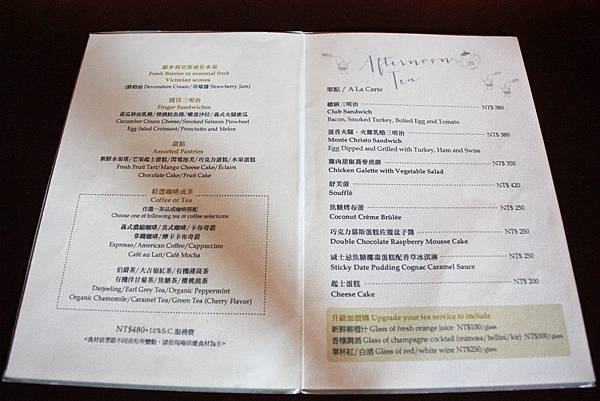 維多利亞斯康佐水果
Fresh Berries or seasonal fruit
Victorian scones
(鮮奶油 Devonshire Cream/草莓醬 Strawberry Jam)
Finger Sandwiches
Cucumber Cream Cheese/Smoked Salmon Pinwheel
Egg Salad Croissant/Prosciutto and Melon
甜點
Assorted Pastries
Fresh Fruit Tart/Mango Cheese Cake/Éclairs
Chocolate Cake/Fruit Cake
精選咖啡或茶
Coffee or Tea
任選一茶品或咖啡搭配
Choose one of following tea or coffee selections
義式濃縮咖啡/美式咖啡/卡布奇諾
拿鐵咖啡/摩卡卡布奇諾
Espresso/American Coffee/Cappuccino
Café au Lait/Café Mocha
伯爵茶/大吉嶺紅茶/有機薄荷茶
有機洋甘菊茶/焦糖茶/櫻桃綠茶
Darjeeling/Earl Grey Tea/Organic Peppermint
Organic Chamomile/Caramel Tea/Green Tea (Cherry Flavor)
NT$480+10%S.C.服務費
<食材依季節不同而有所變動，請依現場供應食材為主>
Afternoon
Tea
單點 / A La Carte
總匯三明治 NT$ 380
Club Sandwich
Bacon, Smoked Turkey, Boiled Egg and Tomato
蛋香火腿，火雞乳酪三明治 NT$ 380
Monte Christo Sandwich
Egg Dipped and Grilled with Turkey, Ham and Swiss
雞肉甜椒蕎麥煎餅 NT$ 350
Chicken Galette with Vegetable Salad
舒芙蕾 NT$ 420
Soufflé
焦糖烤布蕾 NT$ 250
Coconut Crème Brûlée
巧克力慕斯蛋糕佐覆盆子醬 NT$ 250
Double Chocolate Raspberry Mousse Cake
威士忌焦糖椰棗蛋糕配香草冰淇淋 NT$ 250
Sticky Date Pudding Cognac Caramel Sauce
起士蛋糕 NT$ 200
Cheese Cake
升級加價購 Upgrade your tea service to include
新鮮柳橙汁 Glass of fresh orange juice NT$100/glass
香檳調酒 Glass of champagne cocktail (mimosa/bellini/kir) NT$300/glass
單杯紅/白酒 Glass of red/white wine NT$250/glass